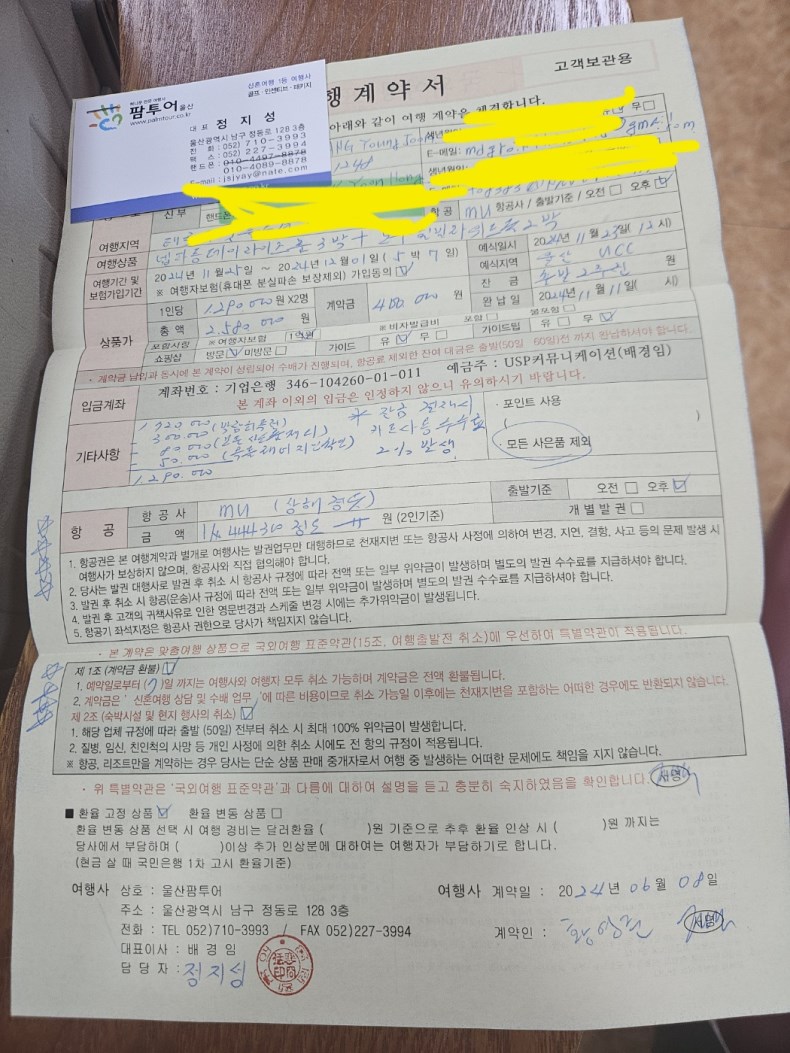 고객보관용
행 계약서
허니문 전문 여행사
팜투어 울산
www.palmtour.co.kr
신혼여행 1등 여행사
골프 · 인센티브 · 패키지
대표 정지성
울산광역시 남구 정동로 128 3층
전화 : 052) 710-3993
팩스 : 052) 227-3994
핸드폰 : 010-4497-8878
010-4089-8878
E-mail : jsjyay@nate.com
아래와 같이 여행 계약을 체결합니다.
E-메일:
생년월일
신부 핸드폰
항공 MU 항공사 / 출발기준 / 오전 □ 오후 ☑
여행지역
여행상품 3박 + 2박
예식일시 2024년 11월 23일( 12시)
여행기간 및 보험가입기간 2024년 11월 25일 ~ 2024년 12월 01일 ( 5 박 7 일)
예식지역 울산 UCC
※ 여행자보험(휴대폰 분실파손 보장제외) 가입동의 ☑
잔금 출발 2주전
상품가 1인당 1,290,000원 X2명 계약금 400,000 원
완납일 2024년 11월 11일( 시)
총액 2,580,000 원
포함사항 ※여행자보험 1억 ※비자발급비 포함 □ 불포함 □
쇼핑샵 방문 ☑ 미방문 □ 가이드 유 ☑ 무 □ 가이드팁 유 □ 무 ☑
· 계약금 납입과 동시에 본 계약이 성립되어 수배가 진행되며, 항공료 제외한 잔여 대금은 출발(50일 60일)전 까지 완납하셔야 합니다.
입금계좌 계좌번호 : 기업은행 346-104260-01-011 예금주 : USP커뮤니케이션(배경임)
본 계좌 이외의 입금은 인정하지 않으니 유의하시기 바랍니다.
기타사항
* 잔금 결제시
카드사용 수수료
2% 발생
1,290,000
· 포인트 사용
( )
· 모든 사은품 제외
항공 항공사 MU (상해경유) 출발기준 오전 □ 오후 ☑
금액 원 (2인기준) 개별발권 □
1. 항공권은 본 여행계약과 별개로 여행사는 발권업무만 대행하므로 천재지변 또는 항공사 사정에 의하여 변경, 지연, 결항, 사고 등의 문제 발생 시
여행사가 보상하지 않으며, 항공사와 직접 협의해야 합니다.
2. 당사는 발권 대행사로 발권 후 취소 시 항공사 규정에 따라 전액 또는 일부 위약금이 발생하며 별도의 발권 수수료를 지급하셔야 합니다.
3. 발권 후 취소 시 항공(운송)사 규정에 따라 전액 또는 일부 위약금이 발생하며 별도의 발권 수수료를 지급하셔야 합니다.
4. 발권 후 고객의 귀책사유로 인한 영문변경과 스케줄 변경 시에는 추가위약금이 발생됩니다.
5. 항공기 좌석지정은 항공사 권한으로 당사가 책임지지 않습니다.
· 본 계약은 맞춤여행 상품으로 국외여행 표준약관(15조, 여행출발전 취소)에 우선하여 특별약관이 적용됩니다.
제 1조 (계약금 환불) ☑
1. 예약일로부터 (7)일 까지는 여행사와 여행자 모두 취소 가능하며 계약금은 전액 환불됩니다.
2. 계약금은 ' 신혼여행 상담 및 수배 업무 '에 따른 비용이므로 취소 가능일 이후에는 천재지변을 포함하는 어떠한 경우에도 반환되지 않습니다.
제 2조 (숙박시설 및 현지 행사의 취소) ☑
1. 해당 업체 규정에 따라 출발 (50일) 전부터 취소 시 최대 100% 위약금이 발생합니다.
2. 질병, 임신, 친인척의 사망 등 개인 사정에 의한 취소 시에도 전 항의 규정이 적용됩니다.
※ 항공, 리조트만을 계약하는 경우 당사는 단순 상품 판매 중개자로서 여행 중 발생하는 어떠한 문제에도 책임을 지지 않습니다.
· 위 특별약관은 '국외여행 표준약관'과 다름에 대하여 설명을 듣고 충분히 숙지하였음을 확인합니다. 서명
■ 환율 고정 상품 ☑ 환율 변동 상품 □
환율 변동 상품 선택 시 여행 경비는 달러환율 ( )원 기준으로 추후 환율 인상 시 ( )원 까지는
당사에서 부담하며 ( )이상 추가 인상분에 대하여는 여행자가 부담하기로 합니다.
(현금 살 때 국민은행 1차 고시 환율기준)
여행사 상호 : 울산팜투어
여행사 계약일 : 2024년 06월 08일
주소 : 울산광역시 남구 정동로 128 3층
전화 : TEL 052)710-3993 / FAX 052)227-3994
계약인 : 서명
대표이사 : 배경임
담당자 : 정지성